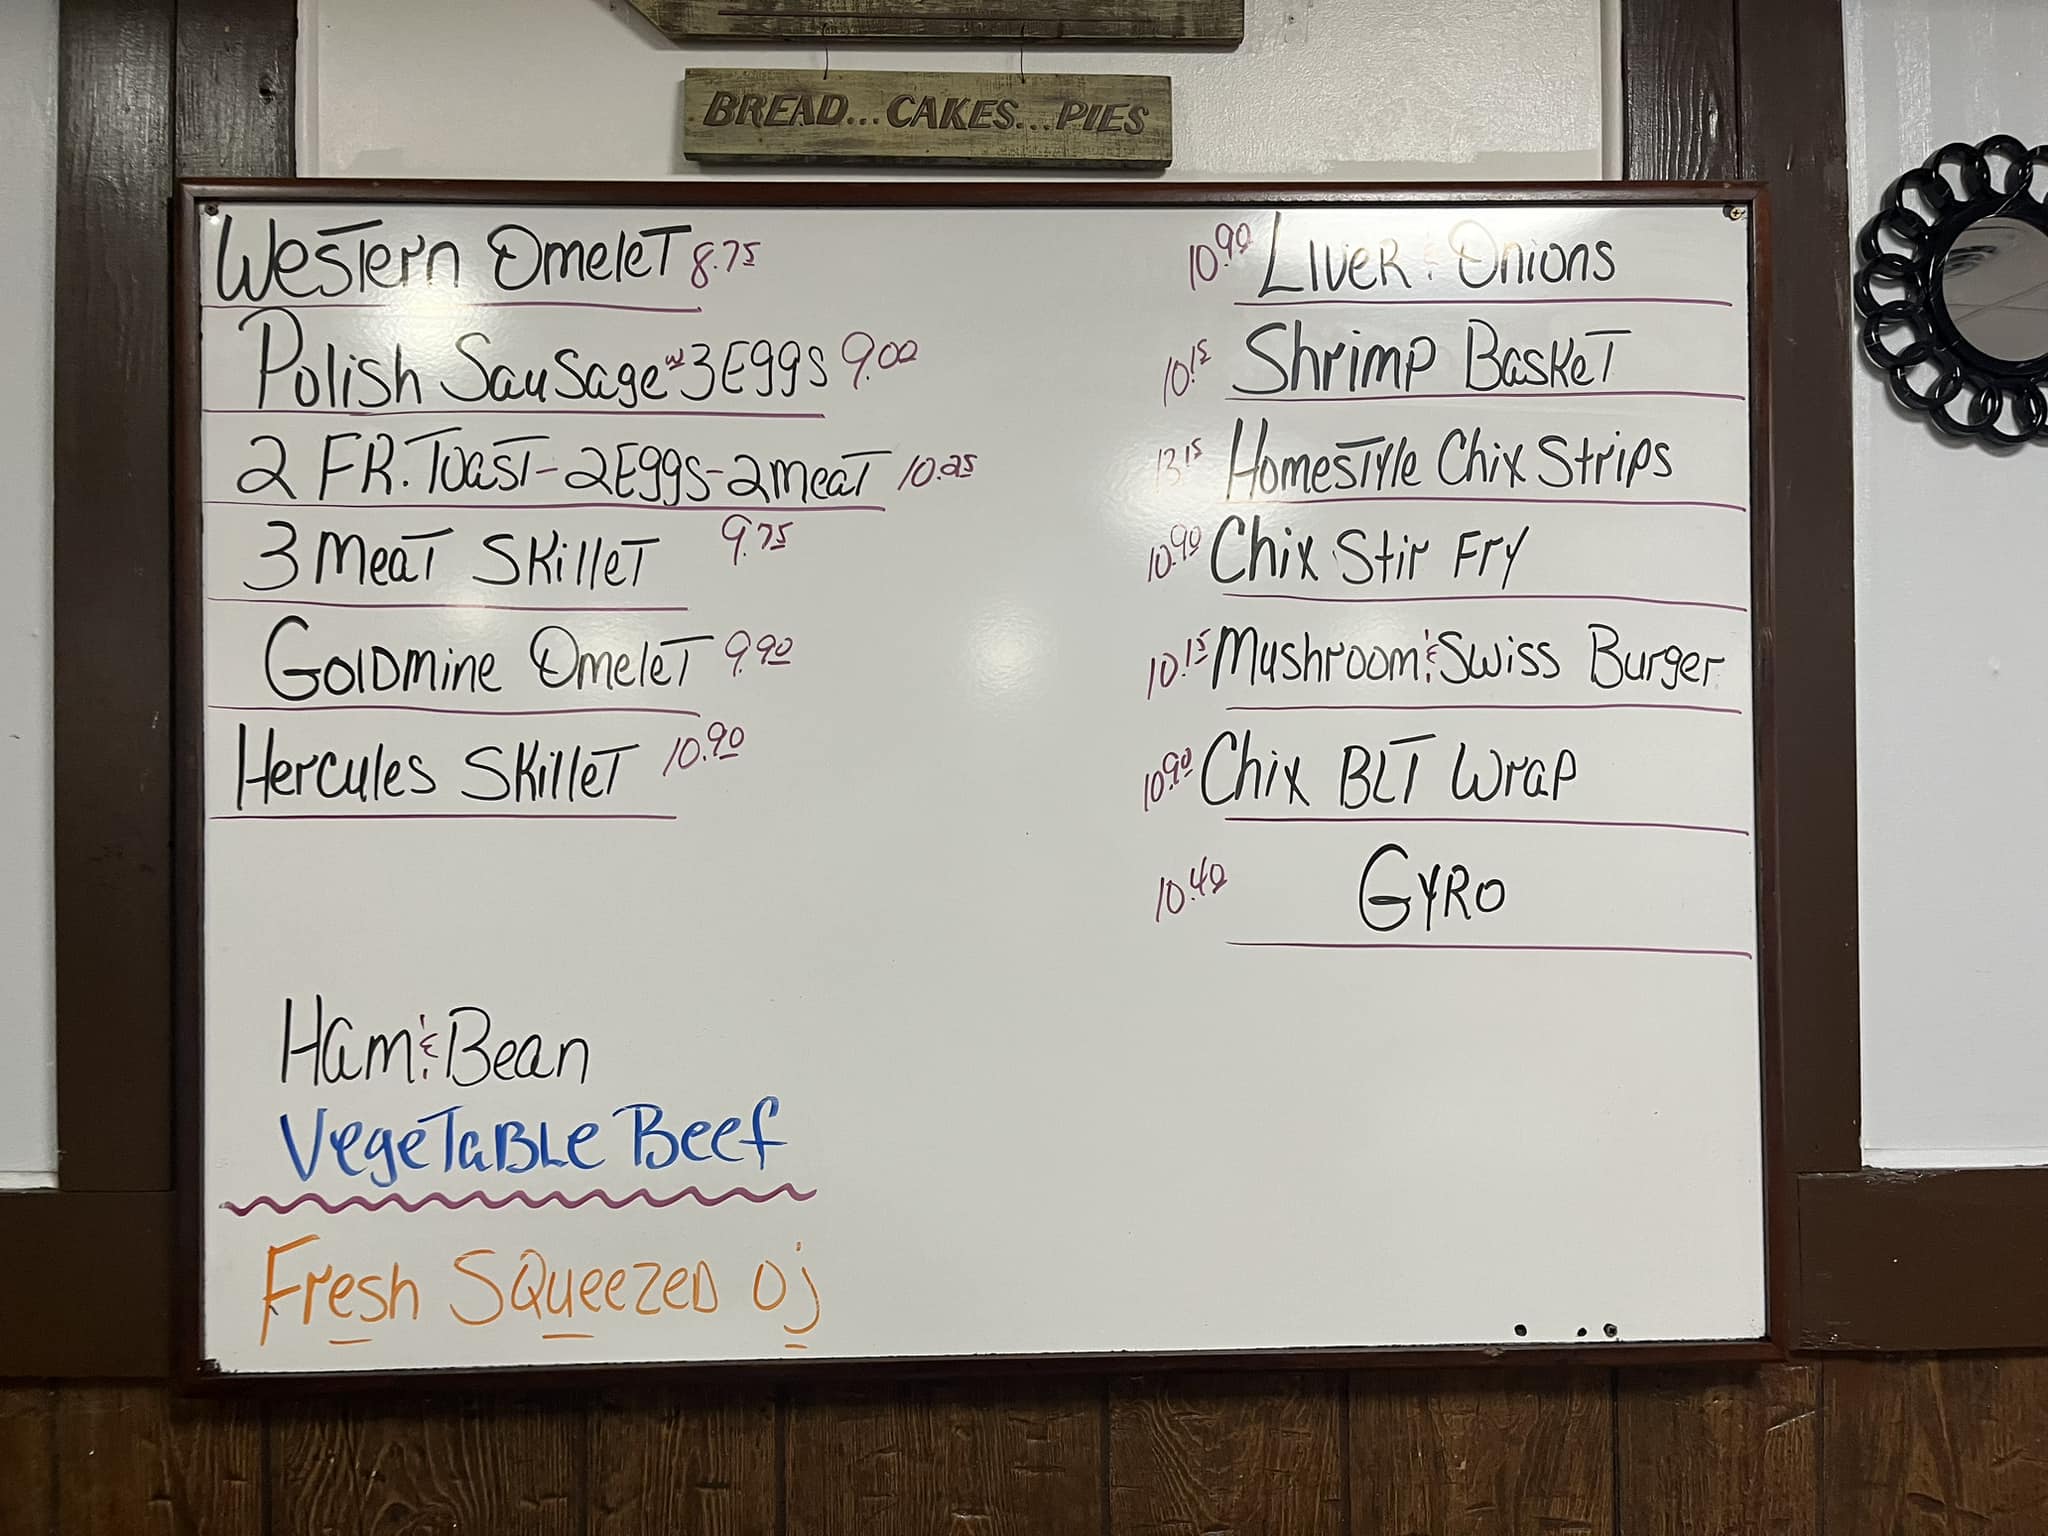 BREAD...CAKES...PIES
Western Omelet 8.75
Polish Sausage w 3 Eggs 9.00
2 FR. Toast - 2 Eggs - 2 meat 10.25
3 meat Skillet 9.75
Goldmine Omelet 9.90
Hercules Skillet 10.90
Ham & Bean
Vegetable Beef
Fresh Squeezed Oj
10.90 Liver & Onions
10.15 Shrimp Basket
13.15 Homestyle Chix Strips
10.90 Chix Stir Fry
10.15 Mushroom & Swiss Burger
10.90 Chix BLT Wrap
10.40 Gyro